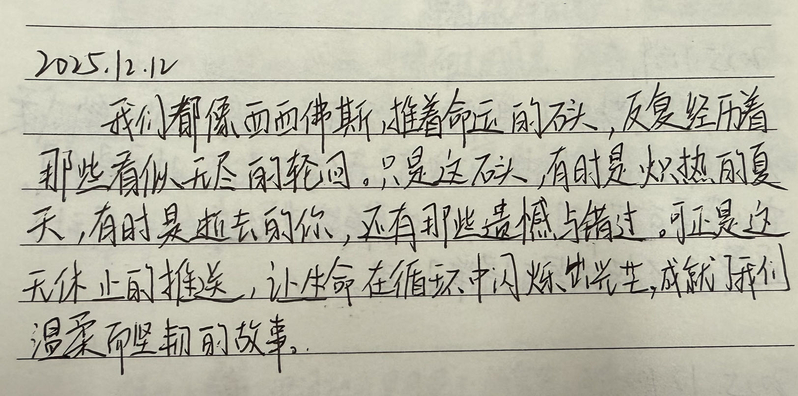 2025.12.12
我们都像西西弗斯,推着命运的石头,反复经历着
那些看似无尽的轮回。只是这石头,有时是炽热的夏
天,有时是逝去的你,还有那些遗憾与错过。可正是这
无休止的推送,让生命在循环中闪烁出光芒,成就了我们
温柔而坚韧的故事。